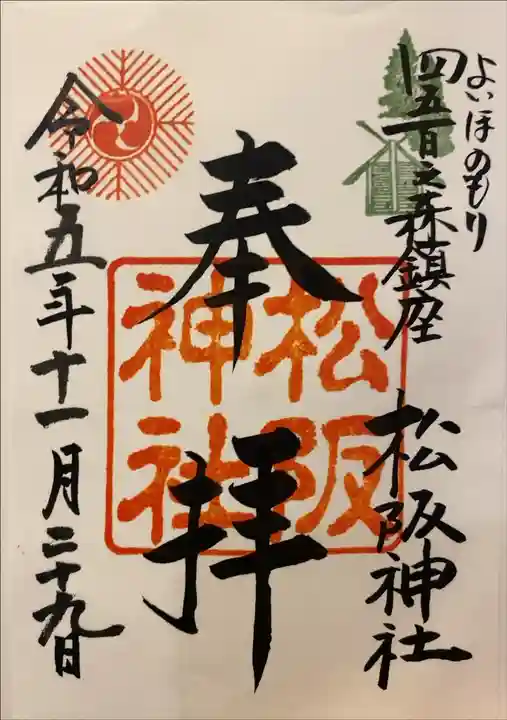 よいほのもり
四五百之森鎮座 松阪神社
奉拝
松阪
神社
令和五年十一月二十九日